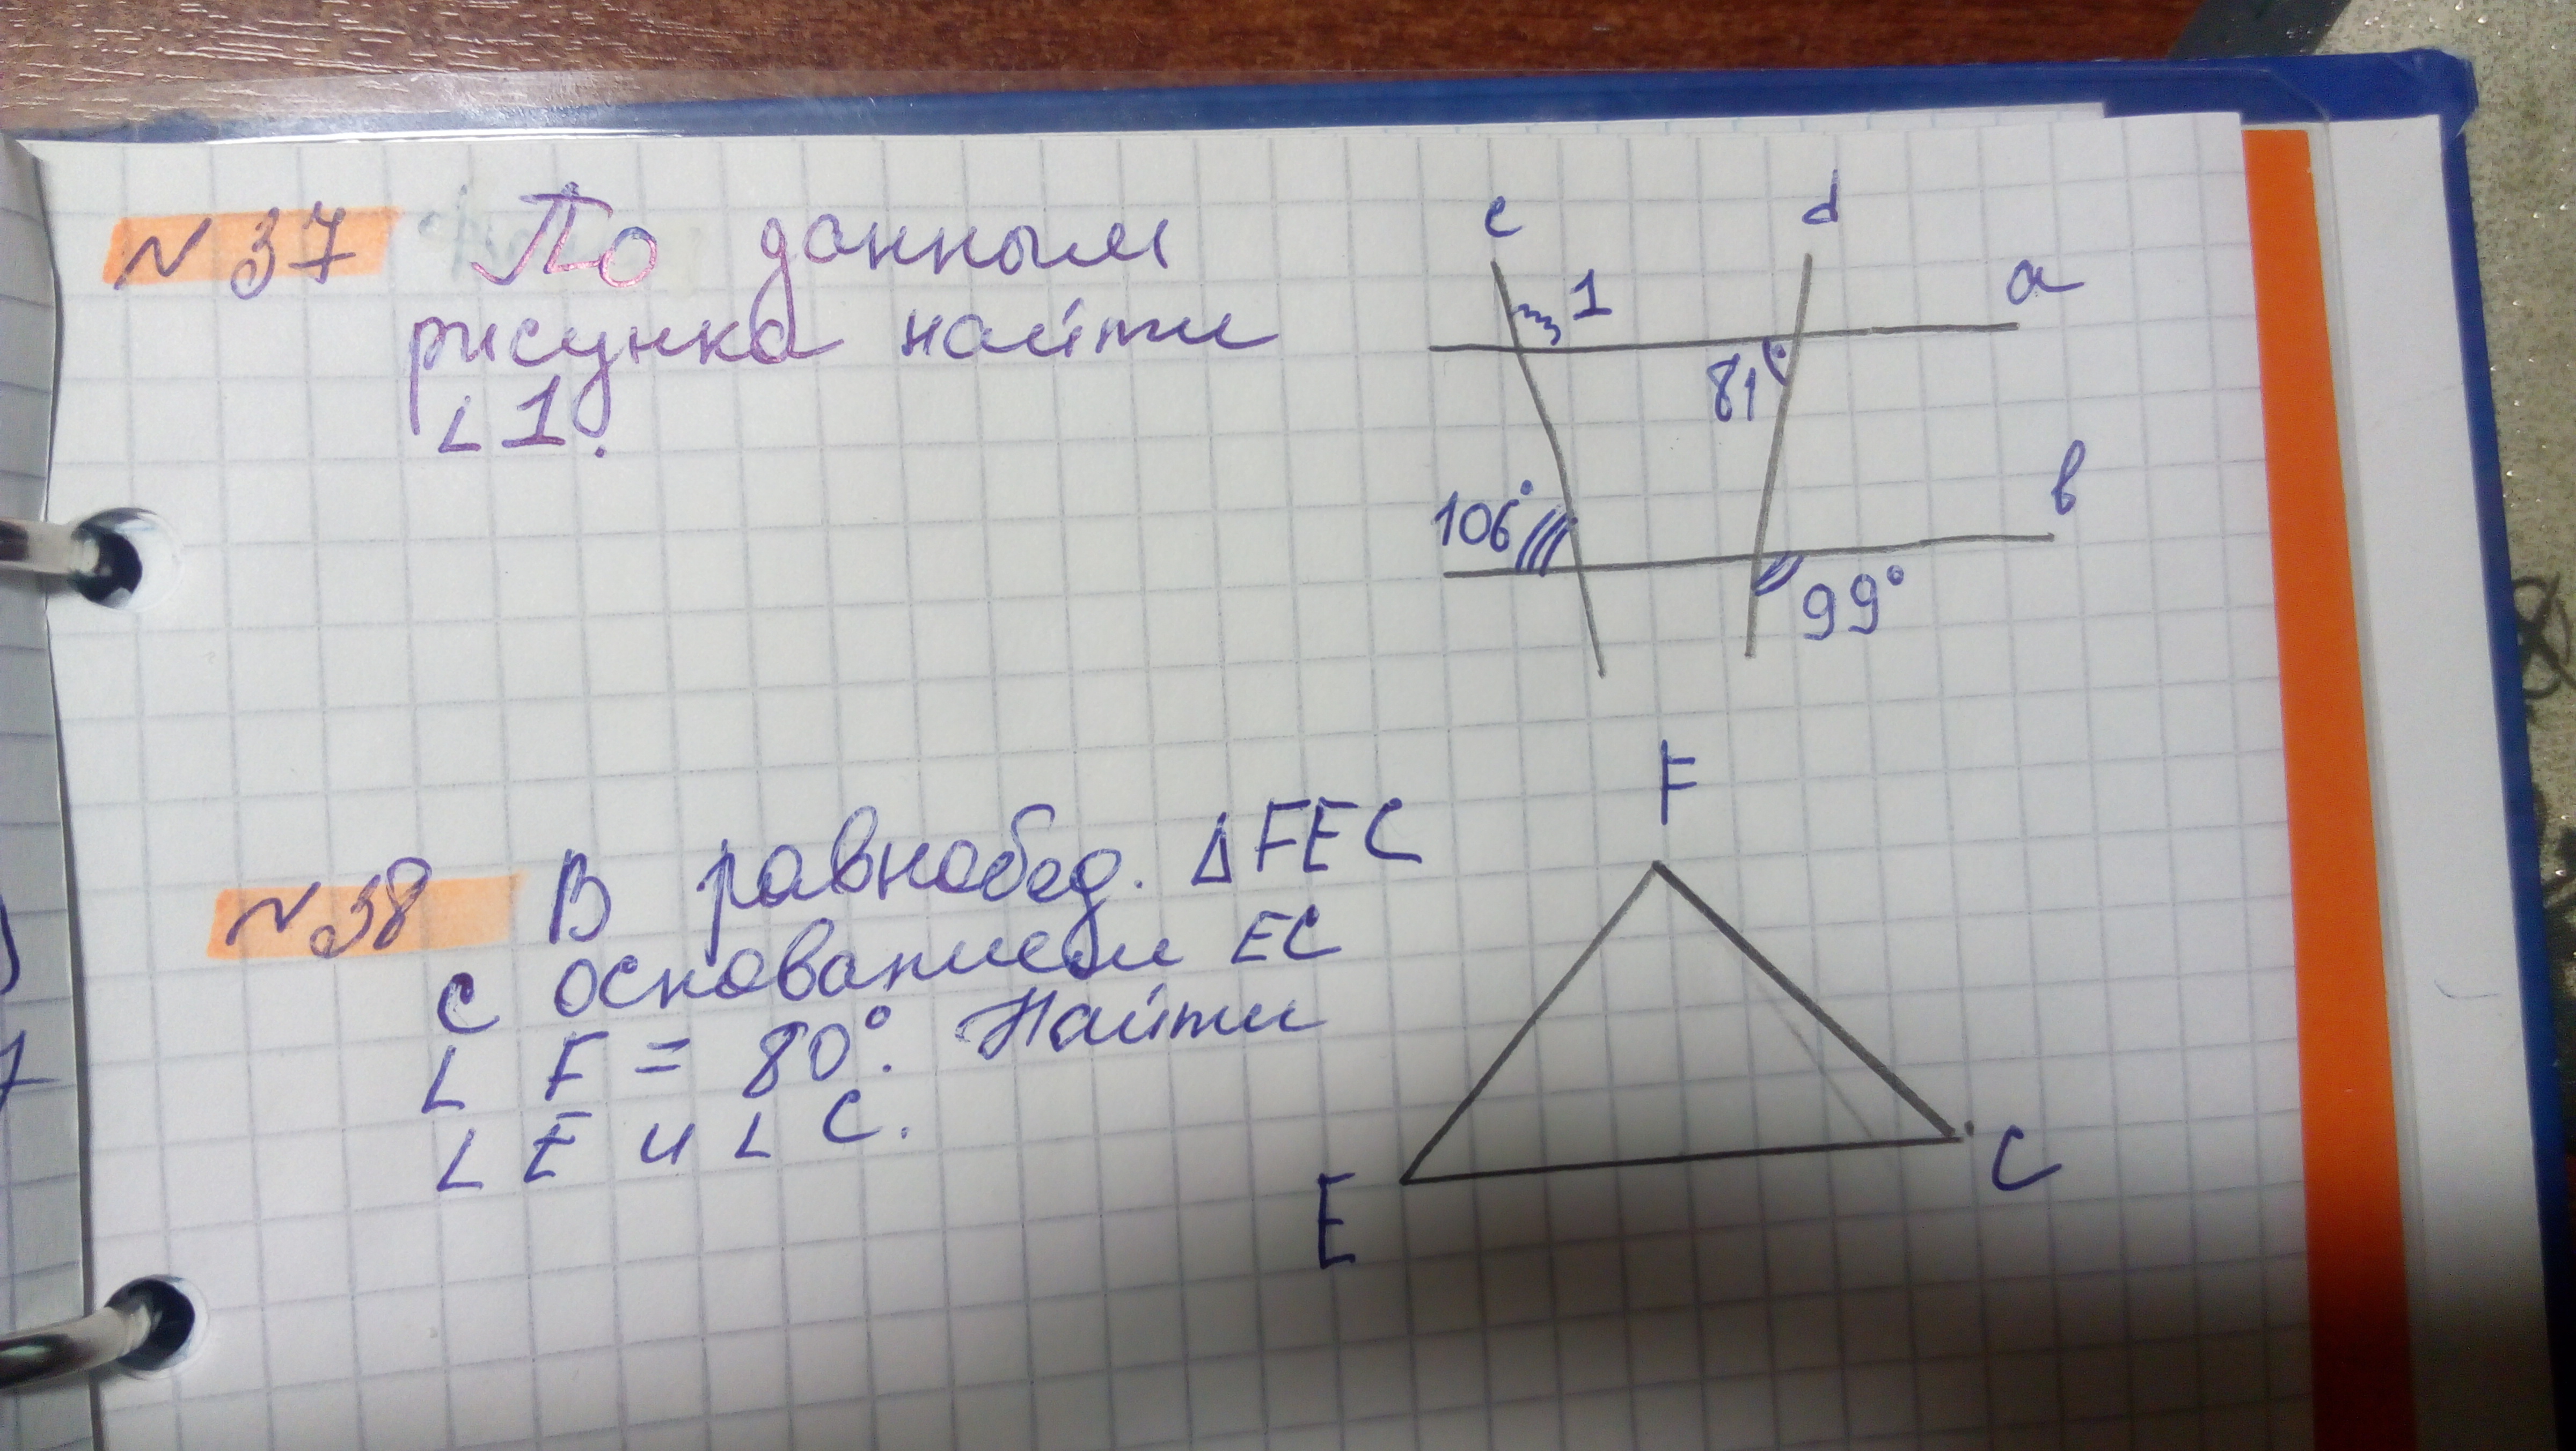 № 37 По данным
рисунка найти
∠1.
c
d
a
1
81°
106°
b
99°
№38 В равнобед. ΔFEC
с основанием EC
∠ F = 80°. Найти
∠ E и ∠ C.
F
E
C